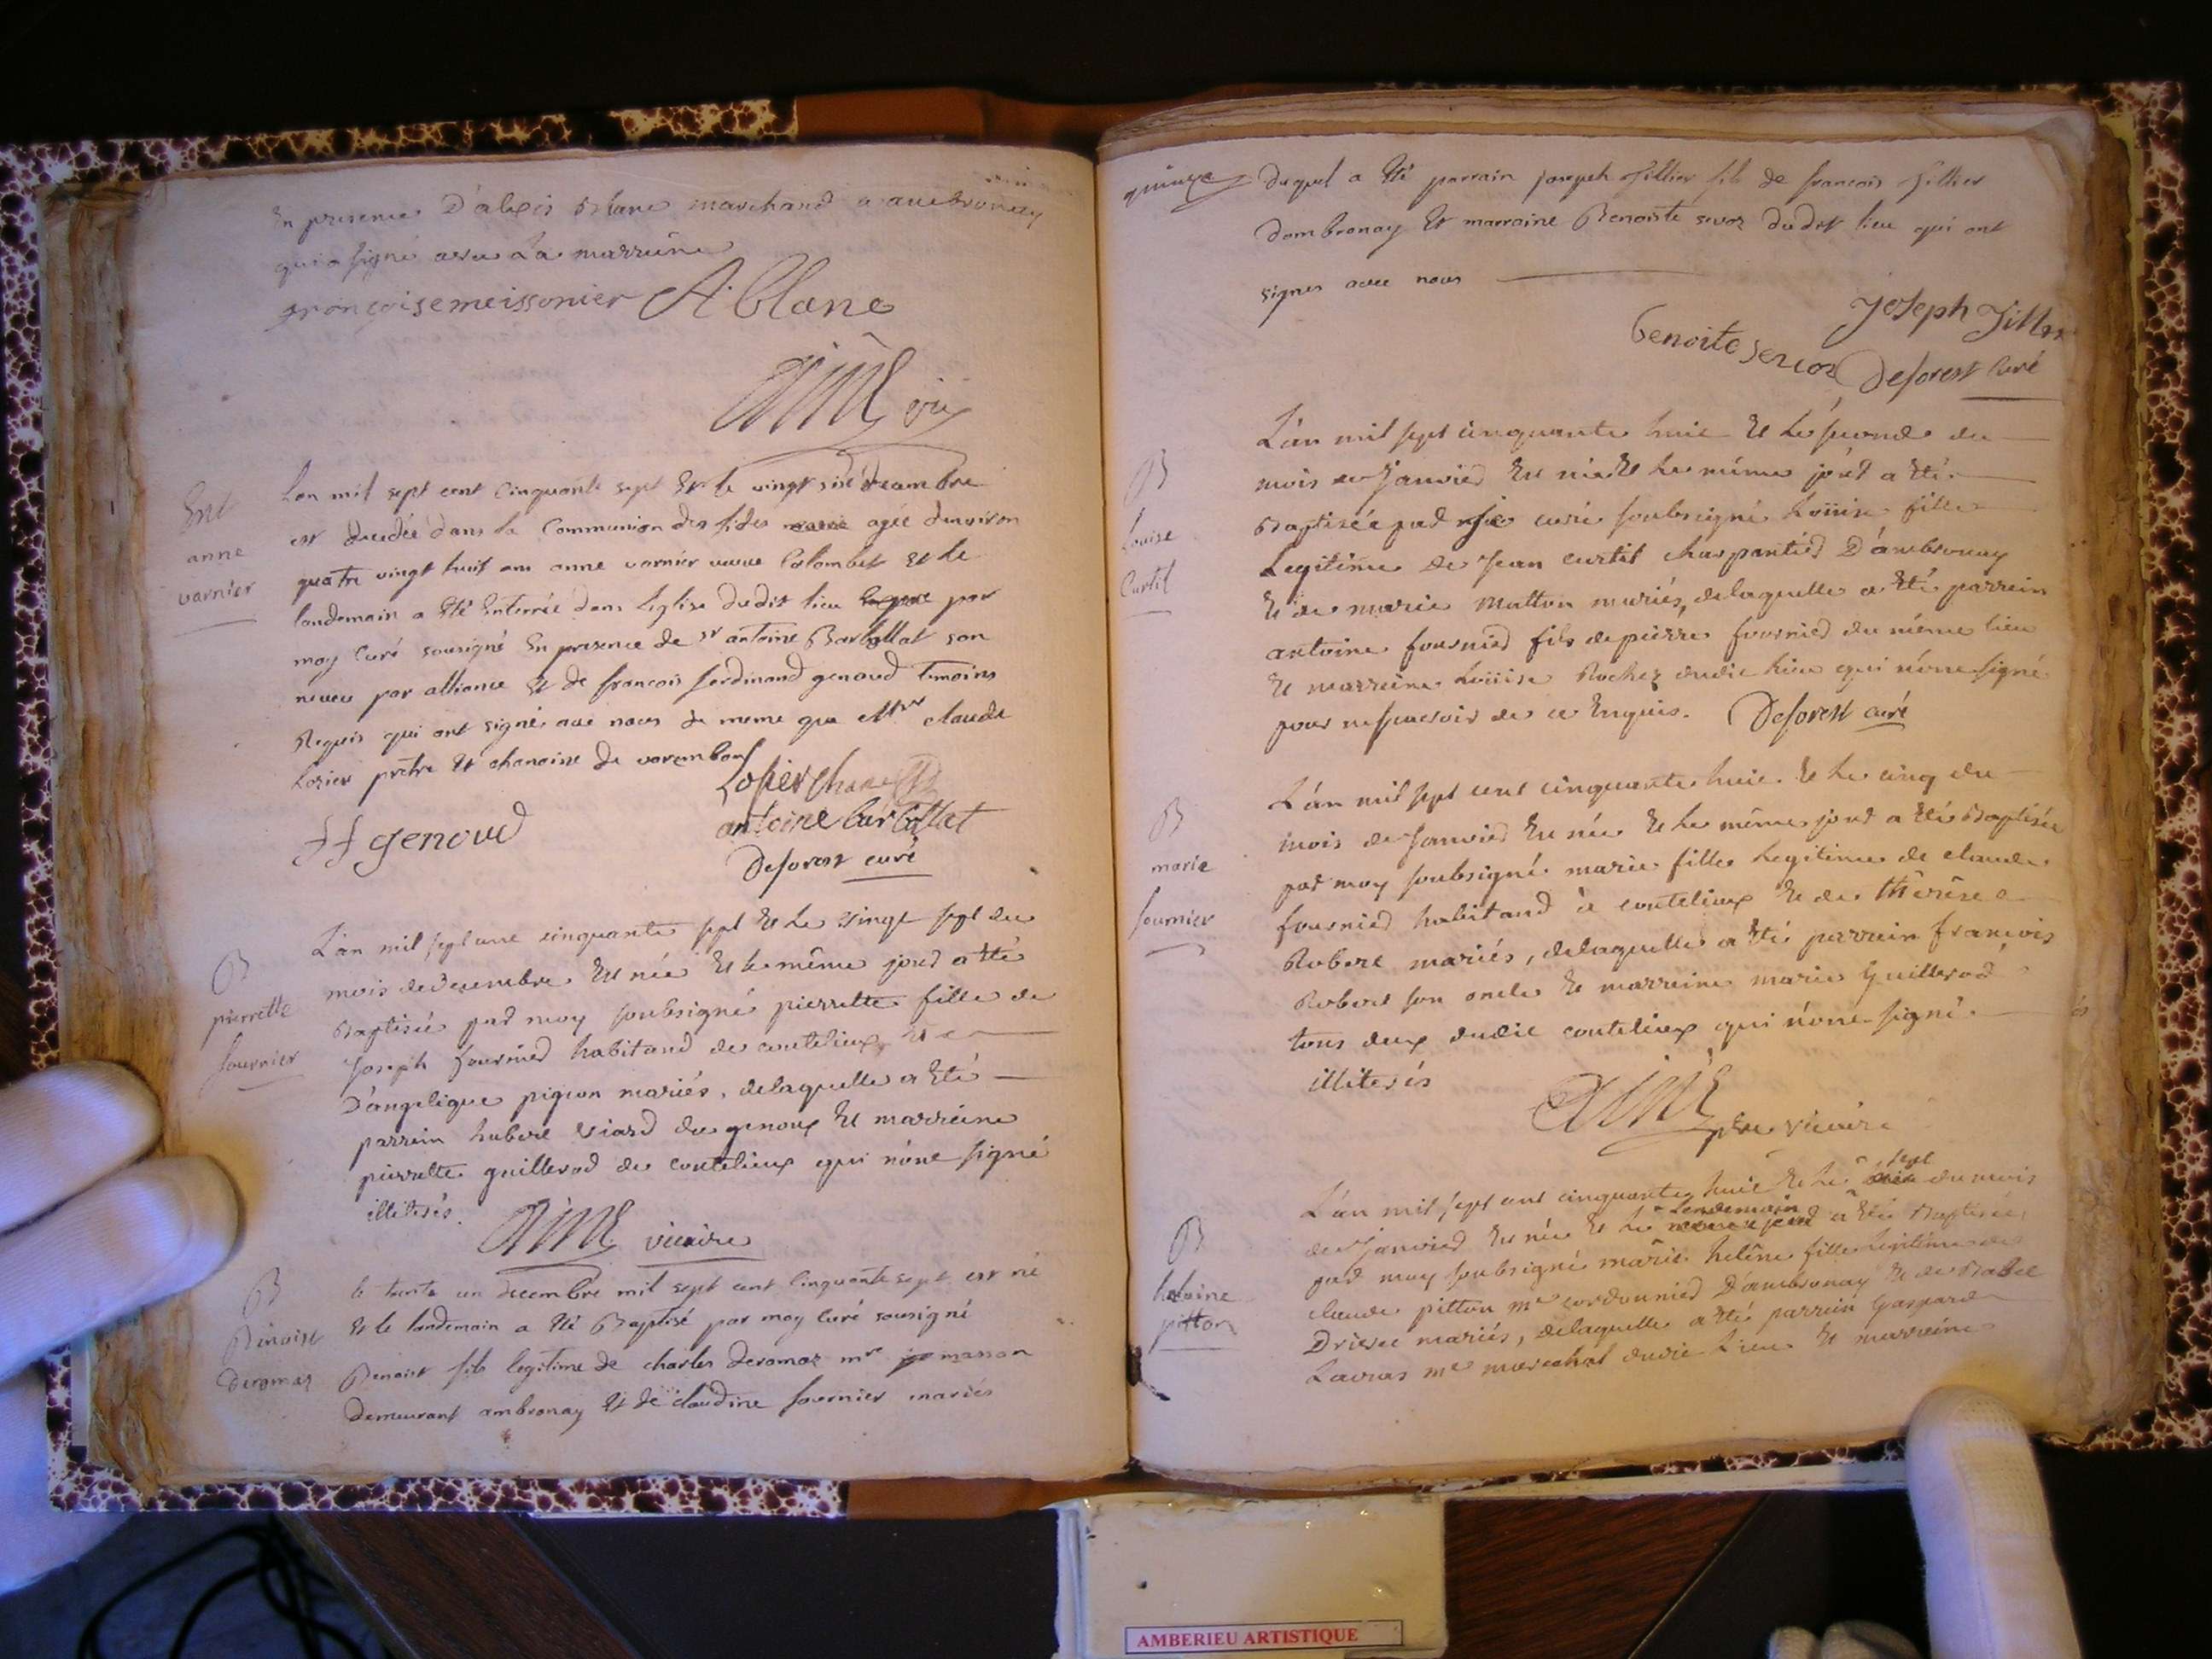 En presence D'alexis Blanc marchand a aubronay
qui a signé avec La marraine
françoise meissonier A. Blanc
Aimé vic
Ent
anne
varnier
Lan mil sept cent Cinquante sept Et le vingt six decembre
est decedée dans la Communion des fideles agée denviron
quatre vingt huit ans anne varnier veuve Colombet et le
landemain a Eté Enterrée dans Leglise dudit lieu par
moy Curé sousigné En presence de sr antoine Barbollat son
neveu par alliance Et de francois ferdinand genoud temoins
Requis qui ont signé avec nous de meme que Mre claude
Losier prêtre Et chanoine de varembon
Losier chan
ff genoud
antoine barbollat
Deforest curé
B
pierrette
fournier
L'an mil sept cent cinquante sept Et Le vingt sept du
mois de decembre Est née Et le même jour a été
Baptisée par moy soubsigné pierrette fille de
Joseph fournier habitand de coutelieux Et
D'angelique pigeon mariés, delaquelle a Eté
parrein hubert viard de genoux Et marreine
pierrette guillerod de coutelieux qui n'ont signé
illiterés. Aimé vicaire
B
Benoist
Deromas
le trente un decembre mil sept cent Cinquante sept est né
Et le landemain a Eté Baptisé par moy Curé sousigné
Benoist fils legitime de charles deromas mre masson
demeurant ambronay Et de claudine fournier mariés
quinze
duquel a Eté parrain joseph Tillier fils de francois Tillier
dambronay Et marraine Benoiste sevoz dudit lieu qui ont
signes avec nous
Joseph Tillier
benoite sevoz Deforest Curé
B
Louise
Curtil
L'an mil sept cinquante huit Et Le second du
mois de Janvier Est née Et Le même jour a Eté
Baptisée par curé soubsigné Loüise fille
Legitime de Jean curtil charpantier D'ambronay
Et de marie Matton mariés, delaquelle a Eté parrein
antoine fournier fils de pierre fournier du même lieu
Et marreine Loüise Rochez dudit lieu qui n'ont signé
pour ne sçavoir de ce Enquis. Deforest curé
B
marie
fournier
L'an mil sept cent cinquante huit Et Le cinq du
mois de Janvier Est née Et Le même jour a Eté Baptisée
par moy soubsigné marie fille Legitime de claude
fournier habitand à coutelieux Et de thérèse
Robert mariés, delaquelle a Eté parrein francois
Robert son oncle Et marreine marie Guillerod
tous deux dudit coutelieux qui n'ont signé.
illiterés
Aimé ptre vicaire
B
helaine
pitton
L'an mil sept cent cinquante huit Et Le sept du mois
de Janvier Est née Et Le Lendemain a Eté Baptisée
par moy soubsigné marie helêne fille legitime de
claude pitton me cordonnier D'ambronay Et de Babet
Driesee mariés, delaquelle a Eté parrein Gaspard
Lavras me marechal dudit Lieu Et marreine
AMBERIEU ARTISTIQUE